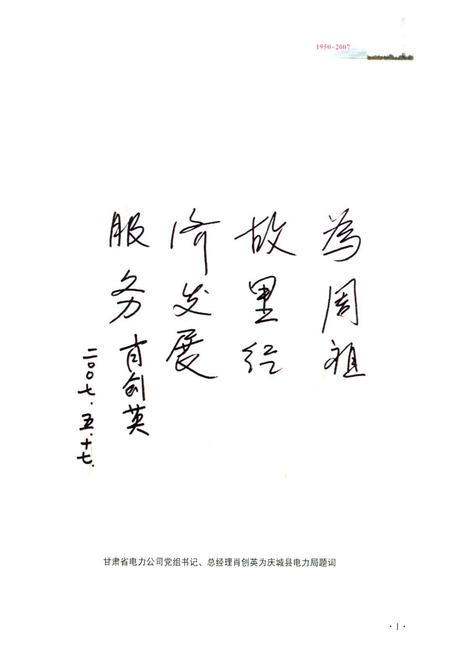 1950-2007
為周祖
故里经
济发展
服务
肖创英
二〇〇七.五.十七.
甘肃省电力公司党组书记、总经理肖创英为庆城县电力局题词
·1·